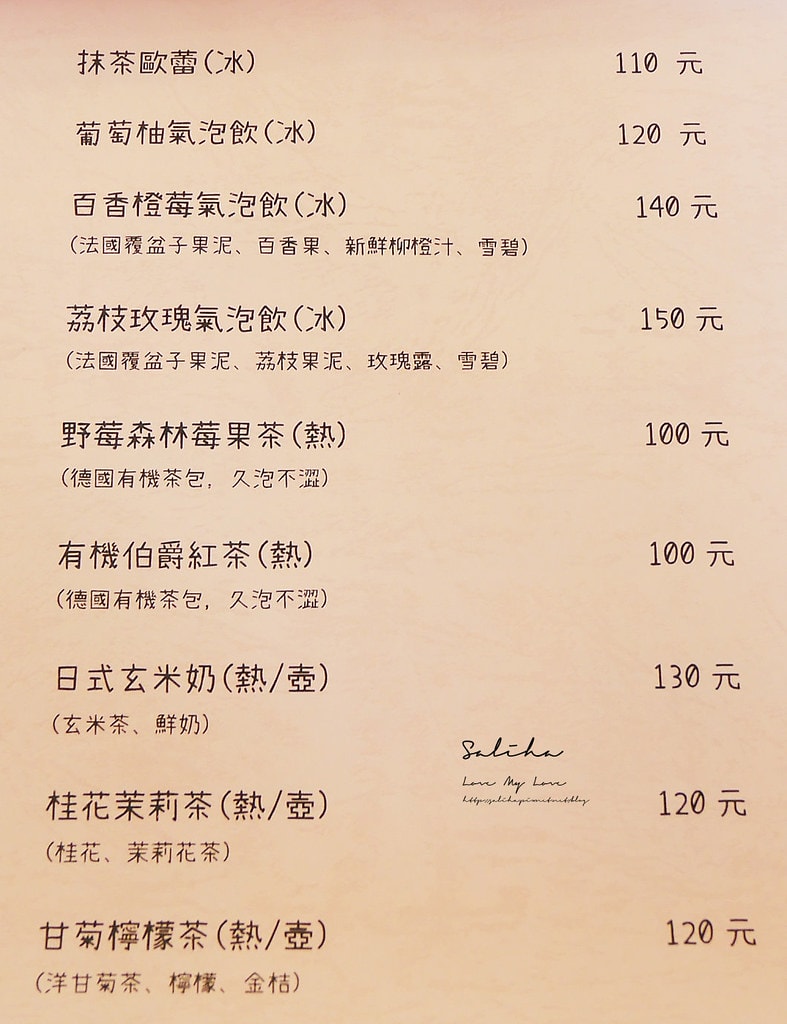 抹茶歐蕾(冰) 110 元
葡萄柚氣泡飲(冰) 120 元
百香橙莓氣泡飲(冰) 140 元
(法國覆盆子果泥、百香果、新鮮柳橙汁、雪碧)
荔枝玫瑰氣泡飲(冰) 150 元
(法國覆盆子果泥、荔枝果泥、玫瑰露、雪碧)
野莓森林莓果茶(熱) 100 元
(德國有機茶包，久泡不澀)
有機伯爵紅茶(熱) 100 元
(德國有機茶包，久泡不澀)
日式玄米奶(熱/壺) 130 元
(玄米茶、鮮奶)
Saliha
Love My Love
桂花茉莉茶(熱/壺) 120 元
(桂花、茉莉花茶)
甘菊檸檬茶(熱/壺) 120 元
(洋甘菊茶、檸檬、金桔)